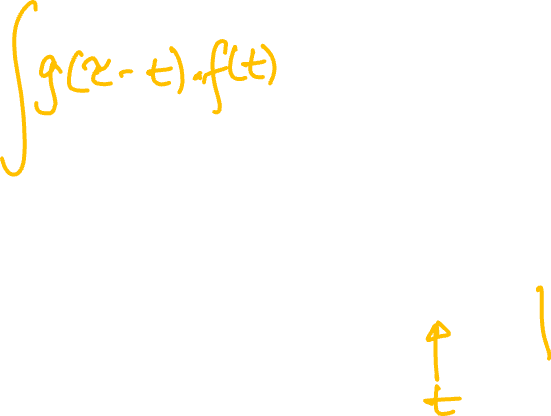 ∫g(x-t).f(t)
t